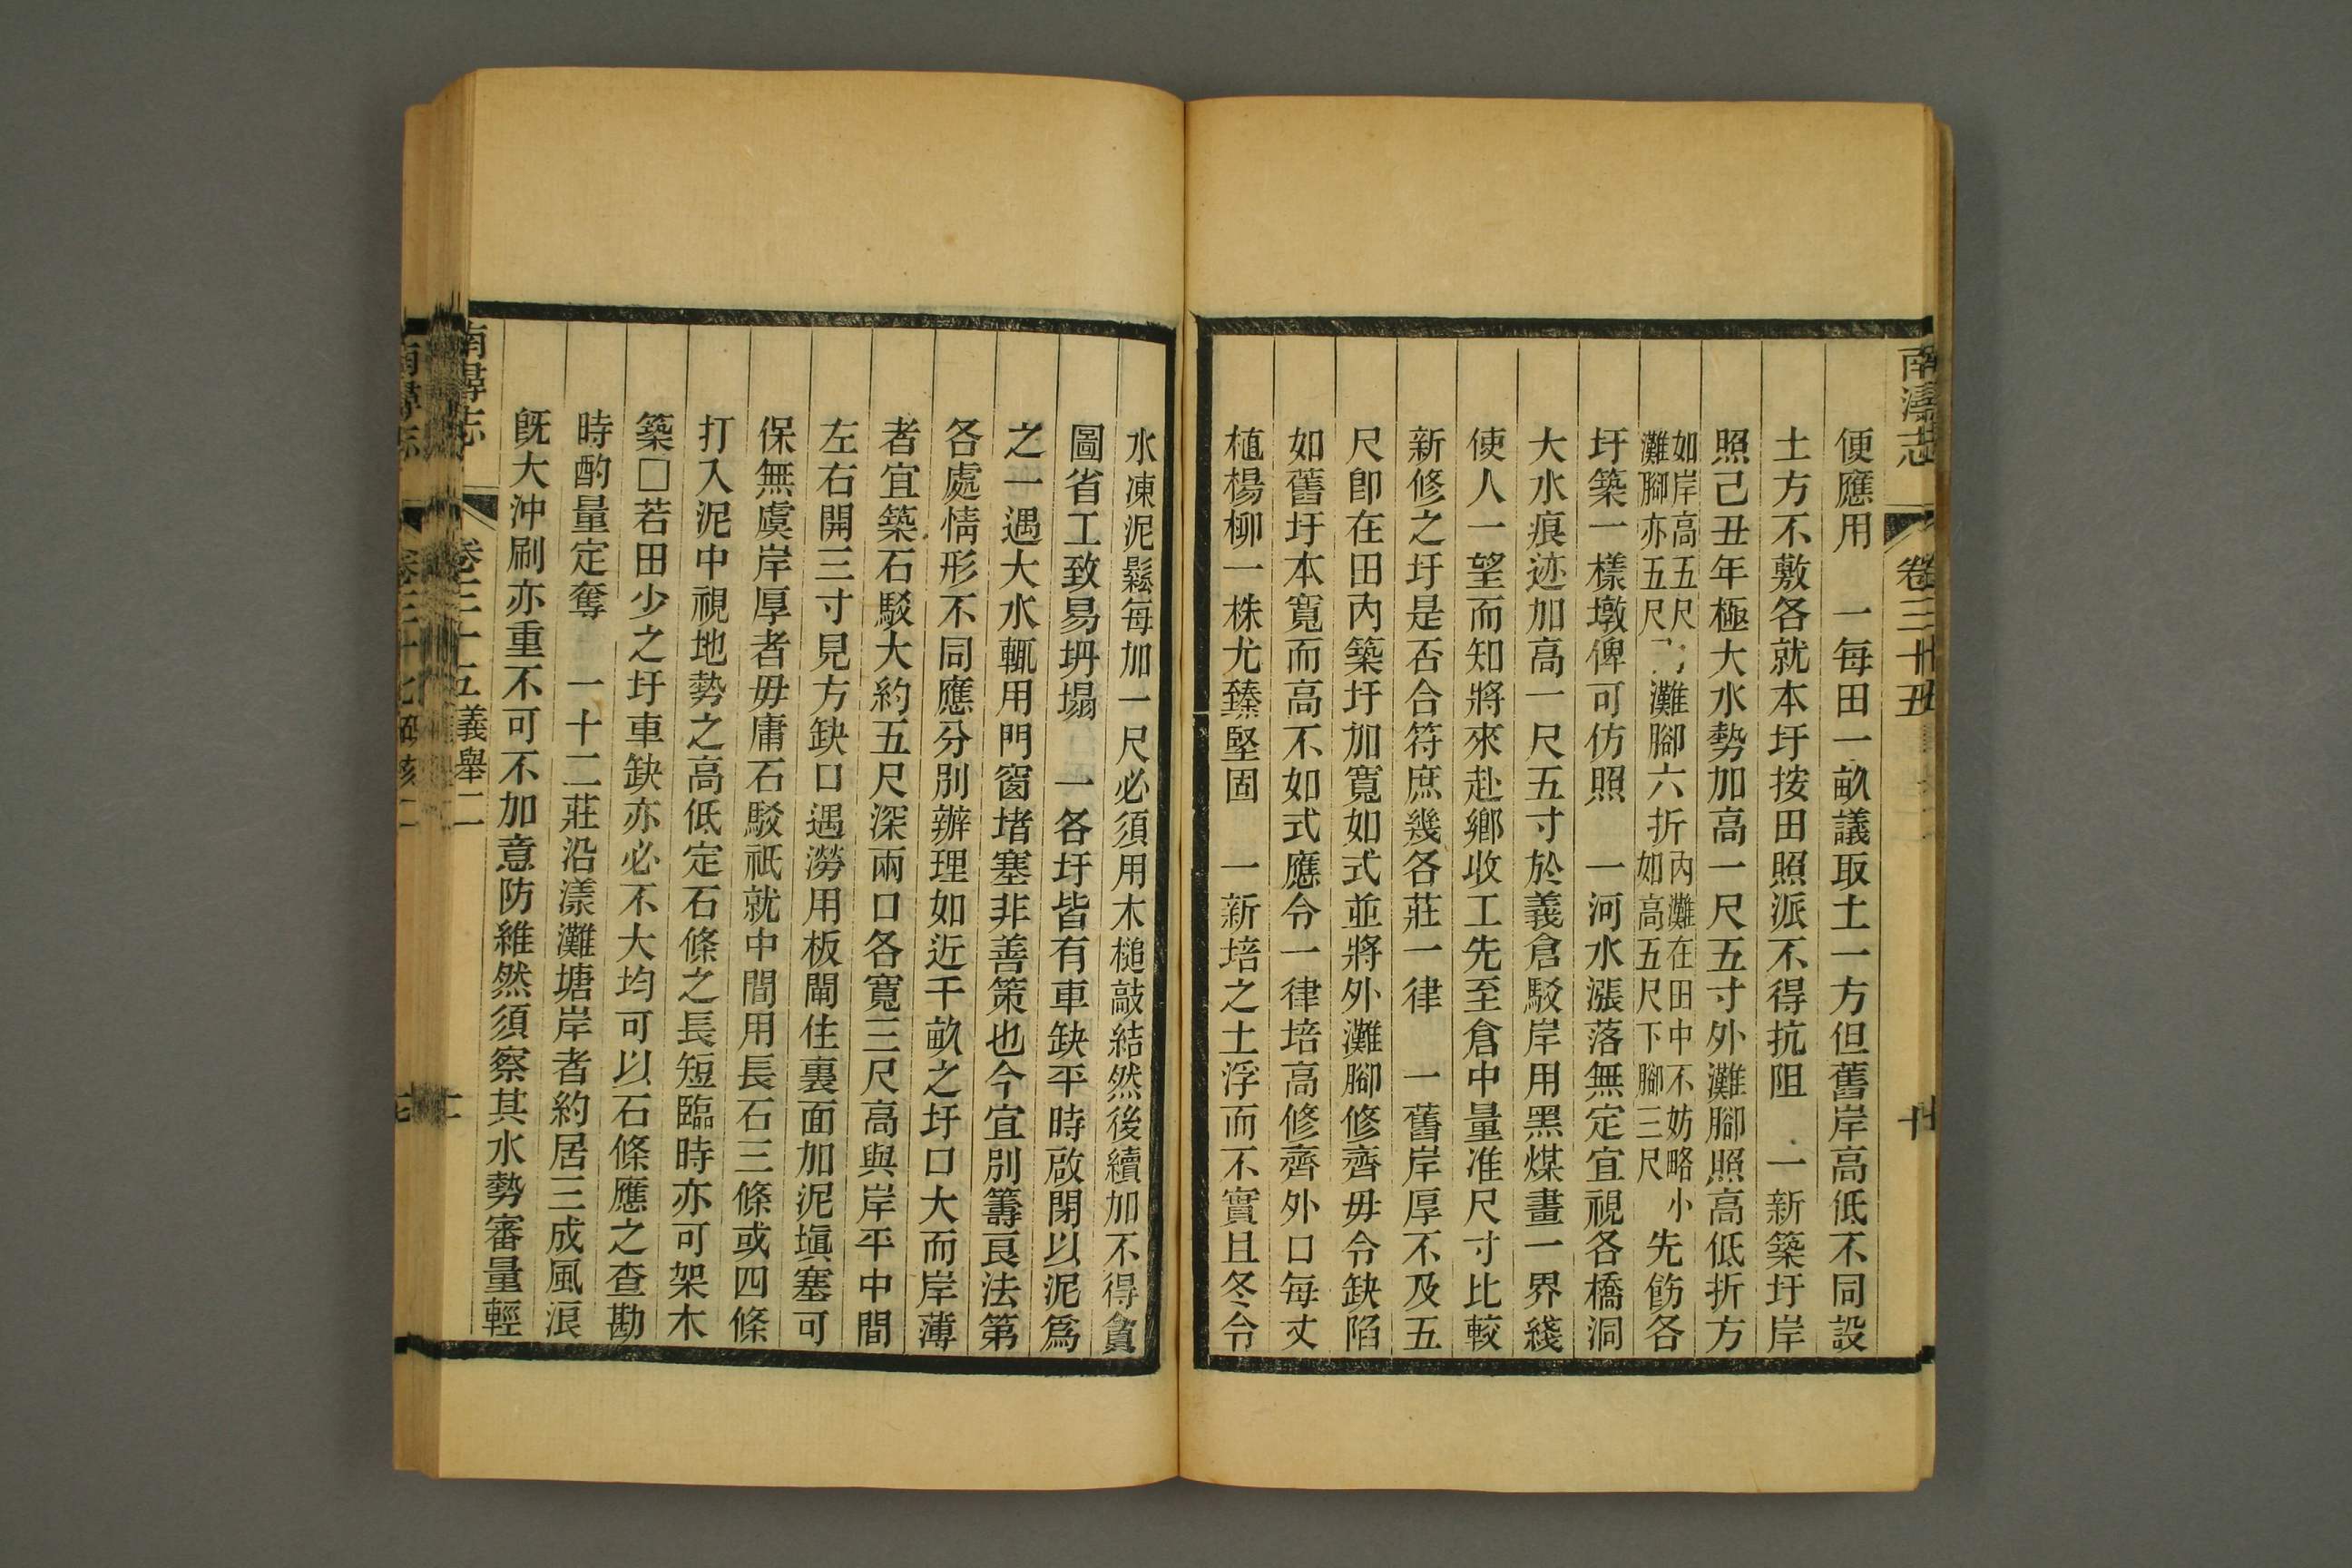 南潯志 卷三十五 十
便應用　一每田一畝議取土一方但舊岸高低不同設
土方不敷各就本圩按田照派不得抗阻　一新築圩岸
照己丑年極大水勢加高一尺五寸外灘腳照高低折方
如岸高五尺灘腳亦五尺灘腳六折內灘在田中不妨略小如高五尺下腳三尺先飭各
圩築一樣墩俾可仿照　一河水漲落無定宜視各橋洞
大水痕迹加高一尺五寸於義倉駁岸用黑煤畫一界綫
使人一望而知將來赴鄉收工先至倉中量准尺寸比較
新修之圩是否合符庶幾各莊一律　一舊岸厚不及五
尺卽在田內築圩加寬如式並將外灘腳修齊毋令缺陷
如舊圩本寬而高不如式應令一律培高修齊外口每丈
植楊柳一株尤臻堅固　一新培之土浮而不實且冬令
水凍泥鬆每加一尺必須用木槌敲結然後續加不得貪
圖省工致易坍塌　一各圩皆有車缺平時啟閉以泥爲
之一遇大水輒用門窗堵塞非善策也今宜別籌良法第
各處情形不同應分別辦理如近千畝之圩口大而岸薄
者宜築石駁大約五尺深兩口各寬三尺高與岸平中間
左右開三寸見方缺口遇澇用板閘住裏面加泥塡塞可
保無虞岸厚者毋庸石駁祇就中間用長石三條或四條
打入泥中視地勢之高低定石條之長短臨時亦可架木
築□若田少之圩車缺亦必不大均可以石條應之查勘
時酌量定奪　一十二莊沿漾灘塘岸者約居三成風浪
旣大沖刷亦重不可不加意防維然須察其水勢審量輕
南潯志 卷三十五 義舉二